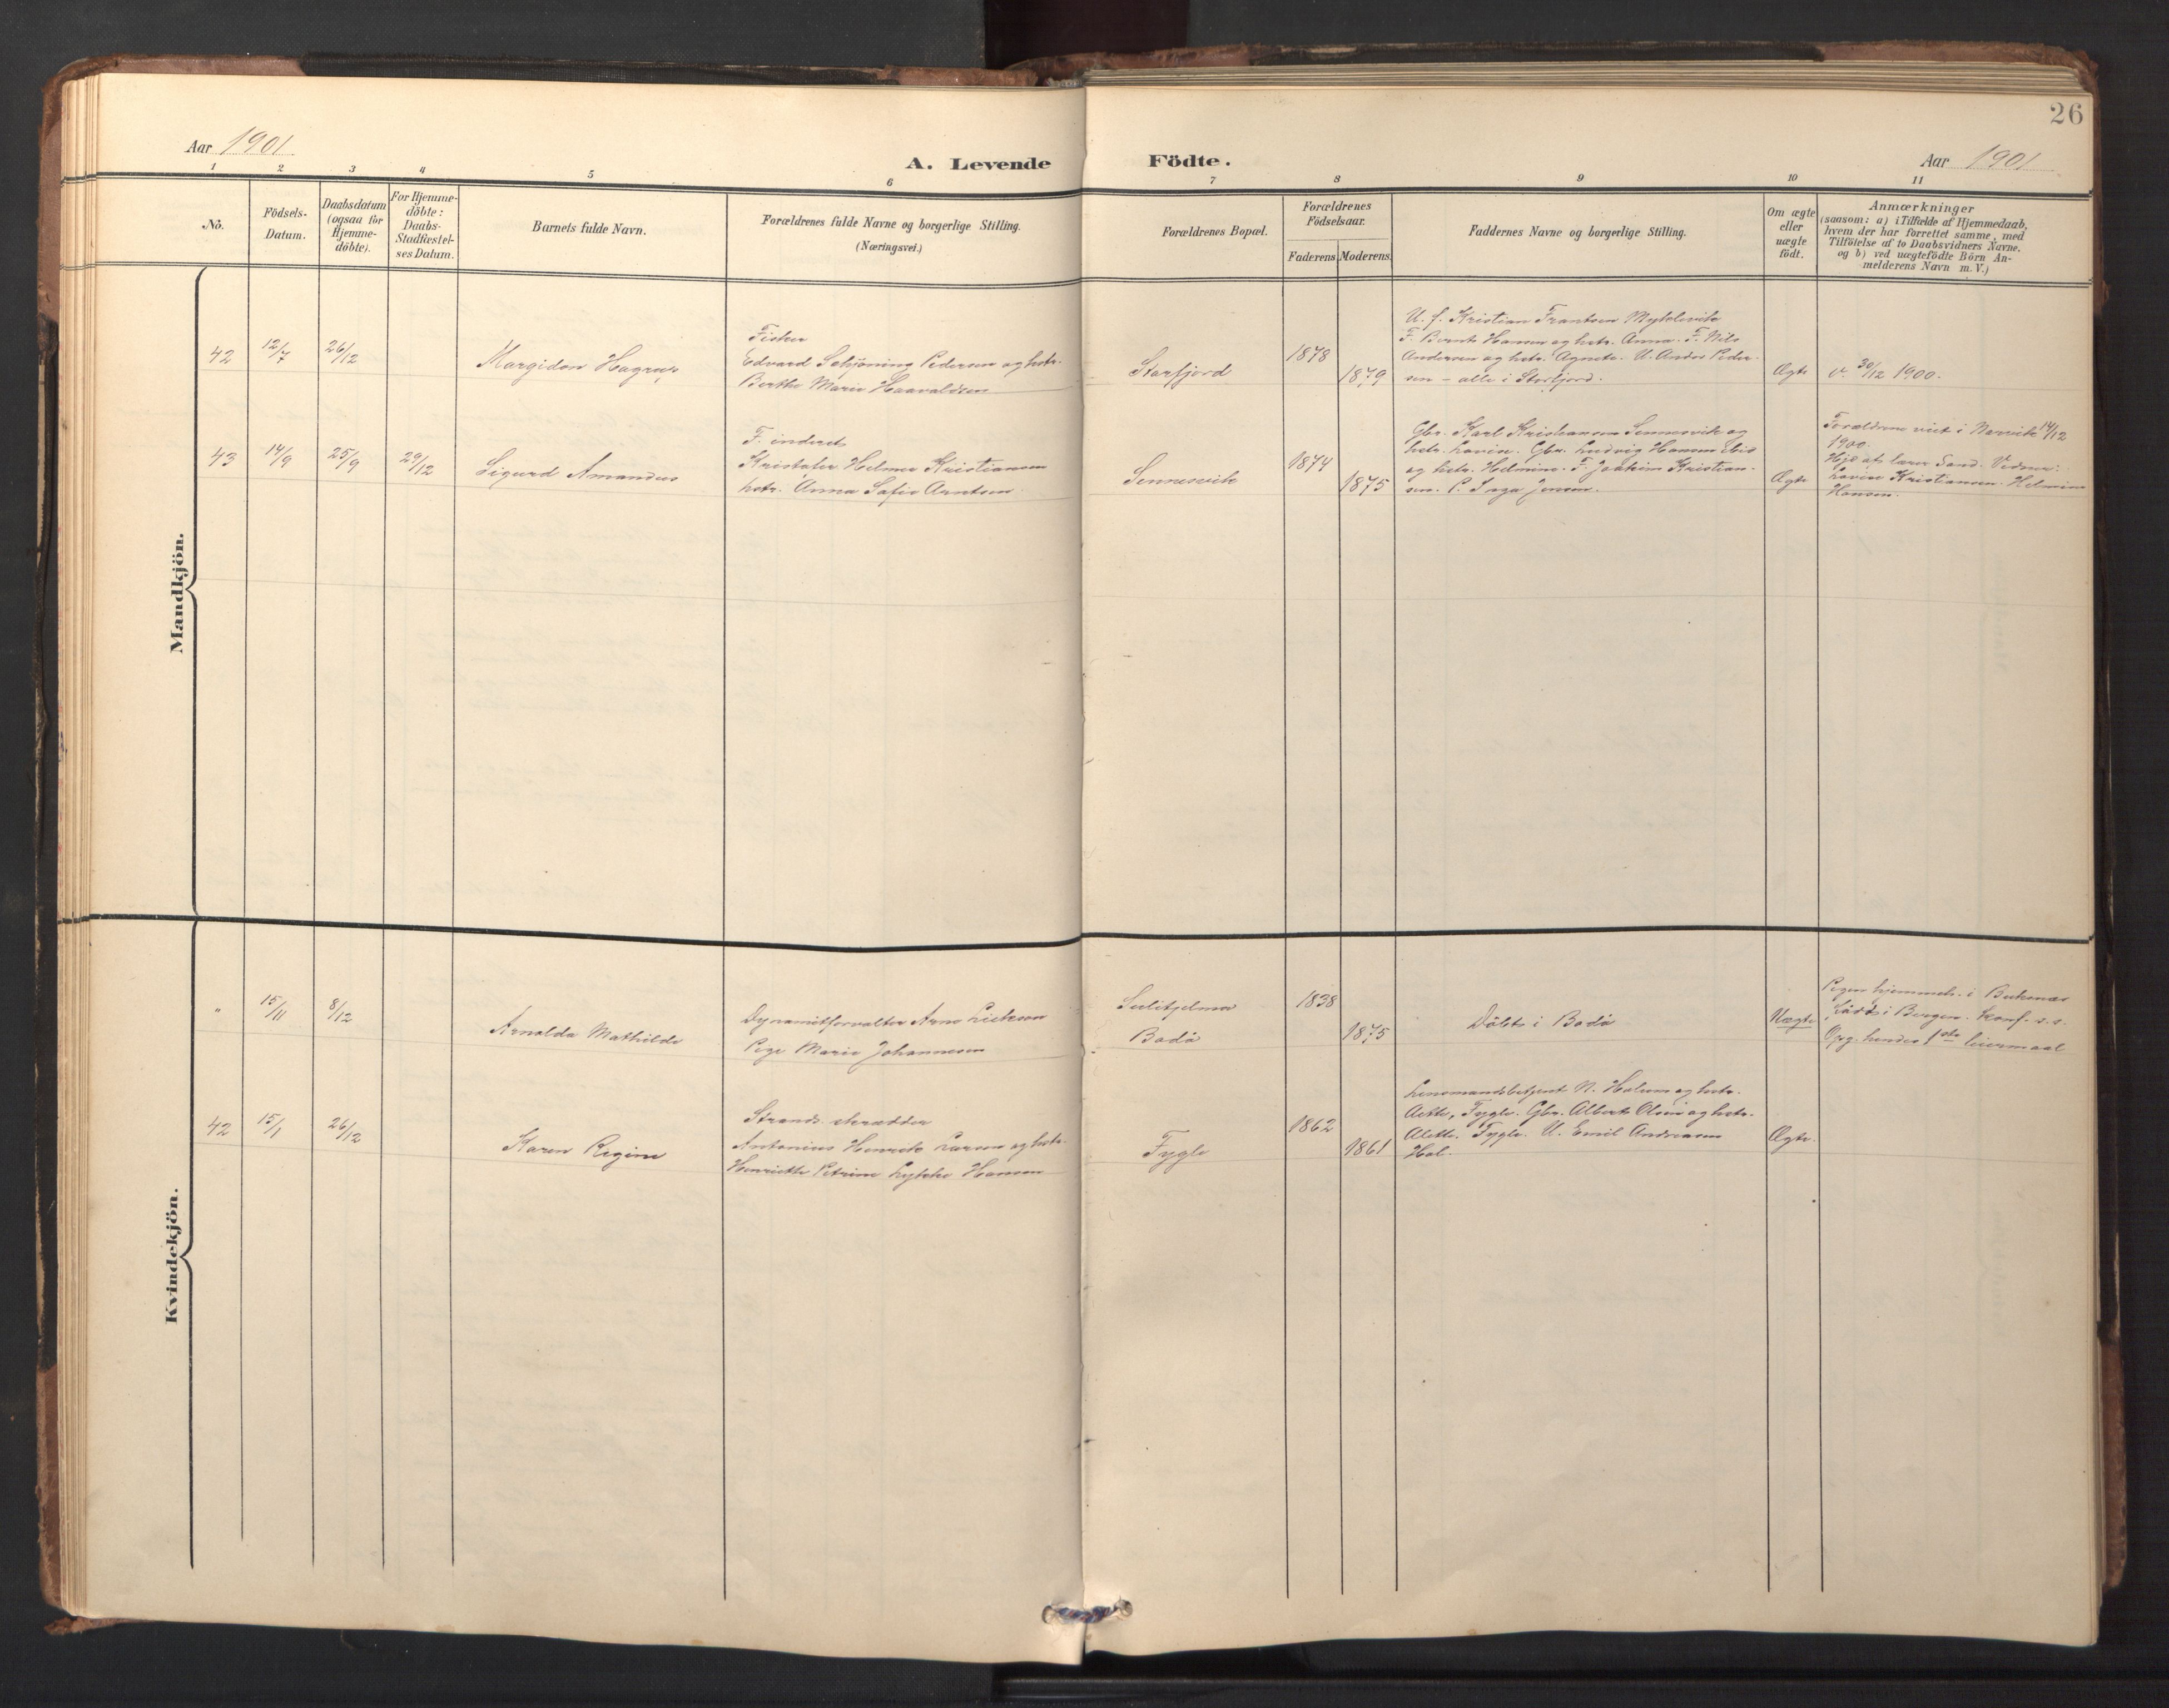 26
Aar 1901
A. Levende Födte.
Aar 1901
1 2 3 4 5 6 7 8 9 10 11
No.
Födsels-
Datum.
Daabsdatum
(ogsaa for
Hjemme-
döbte).
For Hjemme-
döbte:
Daabs-
Stadfæstel-
ses Datum.
Barnets fulde Navn.
Forældrenes fulde Navne og borgerlige Stilling.
(Næringsvei.)
Forældrenes Bopæl.
Forældrenes
Födselsaar.
Faderens Moderens.
Faddernes Navne og borgerlige Stilling.
Om ægte
eller
uægte
födt.
Anmærkninger
(saasom: a) i Tilfælde af Hjemmedaab,
hvem der har forrettet samme, med
Tilföielse af to Daabsvidners Navne,
og b) ved uægtefödte Börn An-
melderens Navn m. V.)
Mandkjön.
42 12/7 26/12
Margidon Hagrup
Fisker
Edvard Schjöning Pedersen og hstr.
Berthe Marie Haavaldsen
Storfjord
1878
1879
U. f. Kristian Frantsen Myklevik
F. Bernt Hansen og hstr. Anna. F. Nils
Andersen og hstr. Agnete. U. Andor Peder-
sen - alle i Storfjord.
Ægte
v. 30/12 1900.
43 14/9 25/9 29/12
Sigurd Amandus
F. inderst
Kristofer Helmer Kristiansen
hstr. Anna Sofie Arntsen
Sennesvik
1874
1875
Gbr. Karl Kristiansen Sennesvik og
hstr. Lovise. Gbr. Ludvig Hansen ibid
og hstr. Helmine. F. Joakim Kristian-
sen. P. Inga Jensen.
Ægte
Forældrene viet i Narvik 14/12
1900.
Hjd. af lærer Sand. Vidner:
Lovise Kristiansen. Helmine
Hansen.
Kvindekjön.
" 15/11 8/12
Arnolda Mathilde
Dynamitforvalter Arne
Pige Marie Johannesen
Sulitjelma
Bodö
1838
1875
Döbt i Bodö
Uægte
Pigen hjemmeh. i Buksnæs
Födt i Bergen. konf. s. s.
Opg. hendes 1ste leiermaal
42 15/1 26/12
Karen Regine
Strands. skrædder
Antonius Henrik Larsen og hstr.
Henriette Petrine Lykke Hansen
Fygle
1862
1861
Lensmandsbetjent N. Holum og hstr.
Fygle. Gbr. Albert Olsen og hstr.
Alette. Fygle. U. Emil Andreasen
Hol.
Ægte.